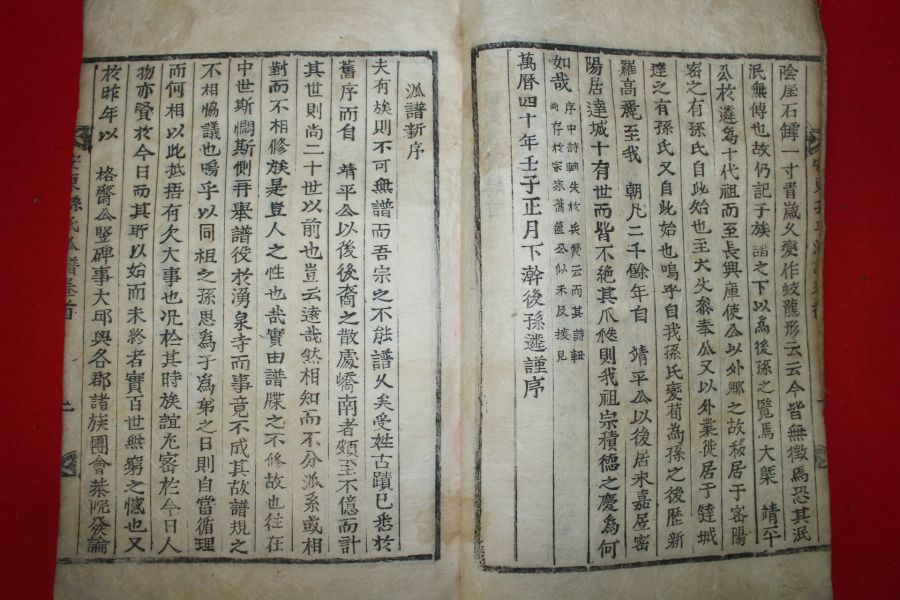 陰厓石罅一寸青歲久變作蛟龍形云云今皆無徵焉恐其泯
泯無傳也故仍記子族譜之下以爲後孫之覽焉大槩 靖平
公於遴爲十代祖而至長興庫使公以外鄕之故移居于密陽
密之有孫氏自此始也至大父參奉公又以外業徙居于達城
達之有孫氏又自此始也嗚乎自我孫氏變荀爲孫之後歷新
羅高麗至我 朝凡二千餘年自 靖平公以後居來嘉居密
陽居達城十有世而皆不絶其瓜瓞則我祖宗積德之慶爲何
如哉 序中詩軸失於兵燹云而其詩軸
尙存於宗家舊篋公似未及接見
萬曆四十年壬子正月下澣後孫遴謹序
派譜新序
夫有族則不可無譜而吾宗之不能譜久矣受姓古蹟已悉於
舊序而自 靖平公以後後裔之散處嶠南者頗至不億而計
其世則尙二十世以前也豈云遠哉然相知而不分派系或相
對而不相修族是豈人之性也哉實由譜牒之不修故也往在
中世斯惆斯惻再舉譜役於湧泉寺而事竟不成其故譜規之
不相恊議也嗚乎以同相之孫思爲子爲弟之日則自當循理
而何相以此抵捂有欠大事也况於其時族誼尤密於今日人
物亦賢於今日而其所以始而未終者實百世無窮之憾也又
於昨年以 格齋公竪碑事大邱與各郡諸族團會某院發論